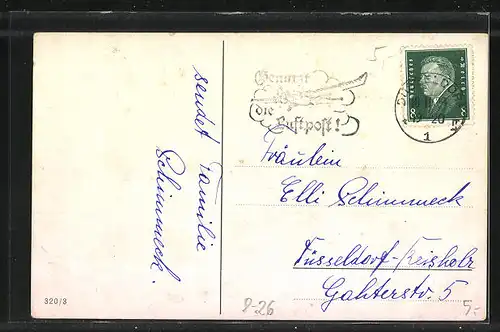 5,-
Benutzt
die
Luftpost!
DEUTSCHES REICH
8 8
1
sendet Familie
Schimmeck.
Fräulein
Elli Schimmeck
Düsseldorf-Reisholz
Gahterstr. 5
320/3
8-26
5.-